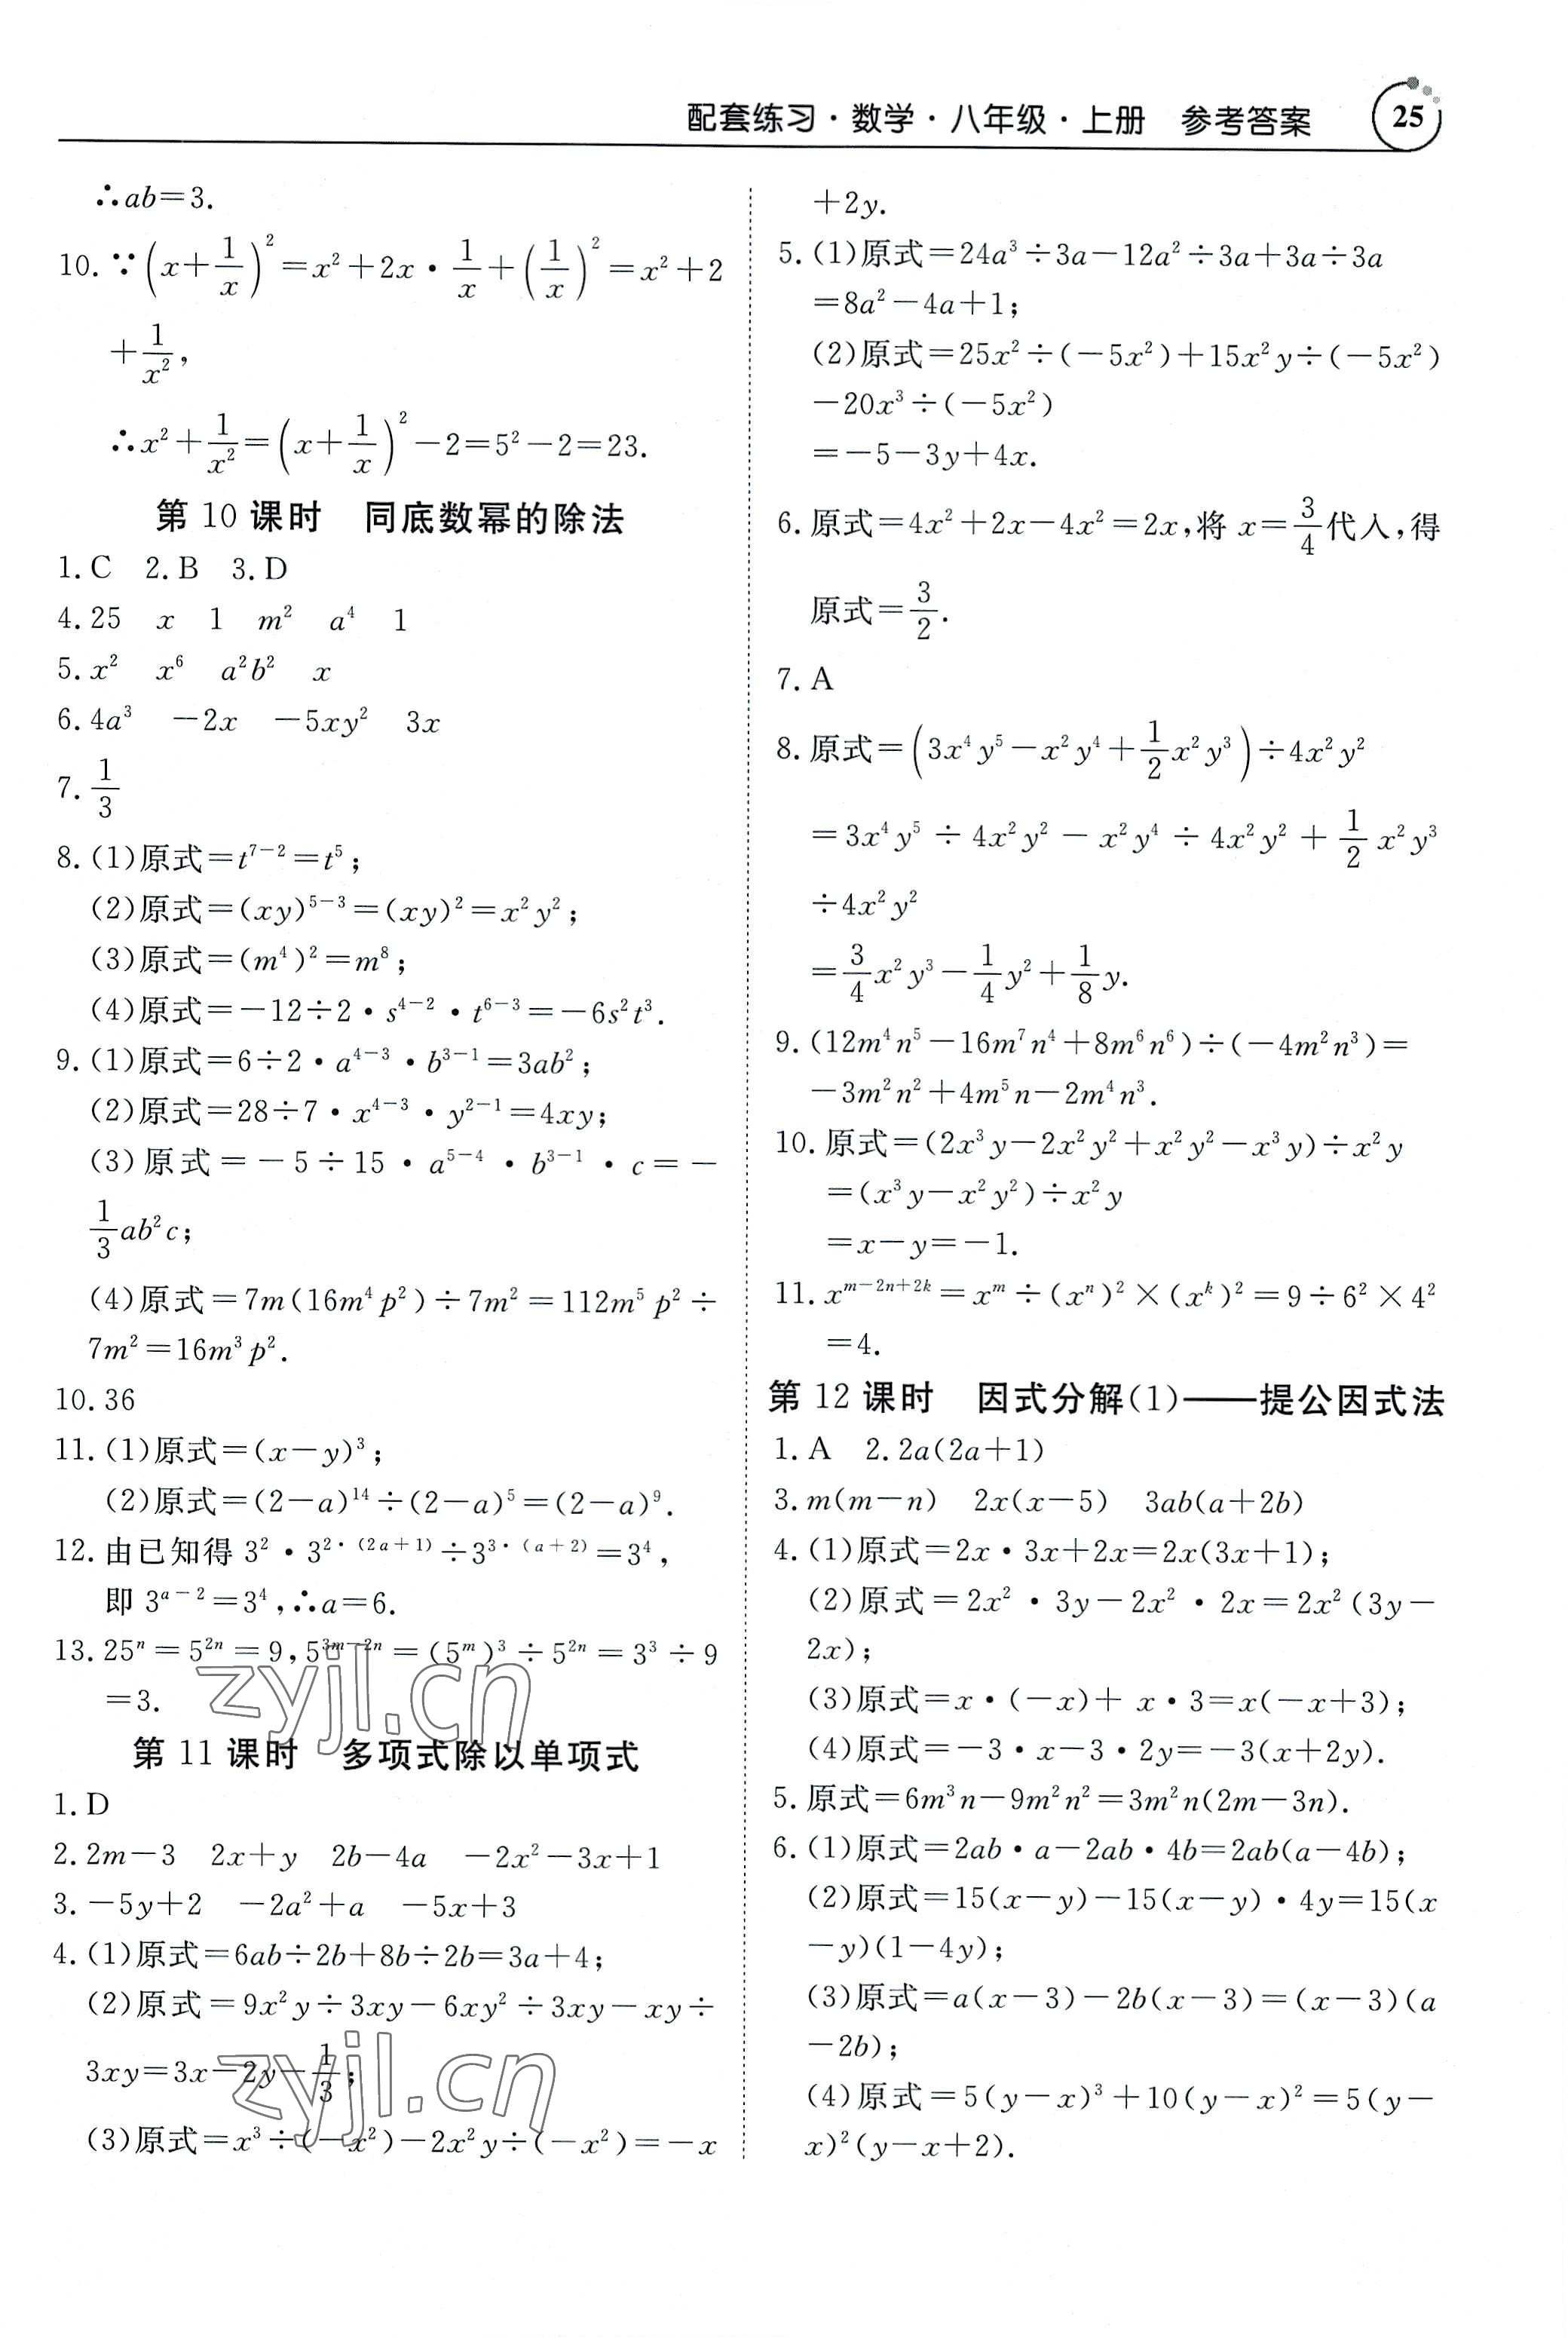 配套练习·数学·八年级·上册 参考答案 25
∴ab=3.
10. ∵(x+1/x)²=x²+2x·1/x+(1/x)²=x²+2
+1/x²,
∴x²+1/x²=(x+1/x)²-2=5²-2=23.
第 10 课时 同底数幂的除法
1.C 2.B 3.D
4.25 x 1 m² a⁴ 1
5.x² x⁶ a²b² x
6.4a³ -2x -5xy² 3x
7. 1/3
8.(1)原式=t⁷⁻²=t⁵;
(2)原式=(xy)⁵⁻³=(xy)²=x²y²;
(3)原式=(m⁴)²=m⁸;
(4)原式=-12÷2·s⁴⁻²·t⁶⁻³=-6s²t³.
9.(1)原式=6÷2·a⁴⁻³·b³⁻¹=3ab²;
(2)原式=28÷7·x⁴⁻³·y²⁻¹=4xy;
(3)原式=-5÷15·a⁵⁻⁴·b³⁻¹·c=-
1/3ab²c;
(4)原式=7m(16m⁴p²)÷7m²=112m⁵p²÷
7m²=16m³p².
10.36
11.(1)原式=(x-y)³;
(2)原式=(2-a)¹⁴÷(2-a)⁵=(2-a)⁹.
12.由已知得 3²·3^(2·(2a+1))÷3^(3·(a+2))=3⁴,
即 3^(a-2)=3⁴,∴a=6.
13.25ⁿ=5²ⁿ=9,5^(3m-2n)=(5ᵐ)³÷5²ⁿ=3³÷9
=3.
第 11 课时 多项式除以单项式
1.D
2.2m-3 2x+y 2b-4a -2x²-3x+1
3.-5y+2 -2a²+a -5x+3
4.(1)原式=6ab÷2b+8b÷2b=3a+4;
(2)原式=9x²y÷3xy-6xy²÷3xy-xy÷
3xy=3x-2y-1/3;
(3)原式=x³÷(-x²)-2x²y÷(-x²)=-x
+2y.
5.(1)原式=24a³÷3a-12a²÷3a+3a÷3a
=8a²-4a+1;
(2)原式=25x²÷(-5x²)+15x²y÷(-5x²)
-20x³÷(-5x²)
=-5-3y+4x.
6.原式=4x²+2x-4x²=2x,将 x=3/4代入,得
原式=3/2.
7.A
8.原式=(3x⁴y⁵-x²y⁴+1/2x²y³)÷4x²y²
=3x⁴y⁵÷4x²y²-x²y⁴÷4x²y²+1/2x²y³
÷4x²y²
=3/4x²y³-1/4y²+1/8y.
9.(12m⁴n⁵-16m⁷n⁴+8m⁶n⁶)÷(-4m²n³)=
-3m²n²+4m⁵n-2m⁴n³.
10.原式=(2x³y-2x²y²+x²y²-x³y)÷x²y
=(x³y-x²y²)÷x²y
=x-y=-1.
11.x^(m-2n+2k)=xᵐ÷(xⁿ)²×(xᵏ)²=9÷6²×4²
=4.
第 12 课时 因式分解(1)——提公因式法
1.A 2.2a(2a+1)
3.m(m-n) 2x(x-5) 3ab(a+2b)
4.(1)原式=2x·3x+2x=2x(3x+1);
(2)原式=2x²·3y-2x²·2x=2x²(3y-
2x);
(3)原式=x·(-x)+x·3=x(-x+3);
(4)原式=-3·x-3·2y=-3(x+2y).
5.原式=6m³n-9m²n²=3m²n(2m-3n).
6.(1)原式=2ab·a-2ab·4b=2ab(a-4b);
(2)原式=15(x-y)-15(x-y)·4y=15(x
-y)(1-4y);
(3)原式=a(x-3)-2b(x-3)=(x-3)(a
-2b);
(4)原式=5(y-x)³+10(y-x)²=5(y-
x)²(y-x+2).
zyjl.cn
zyjl.cn